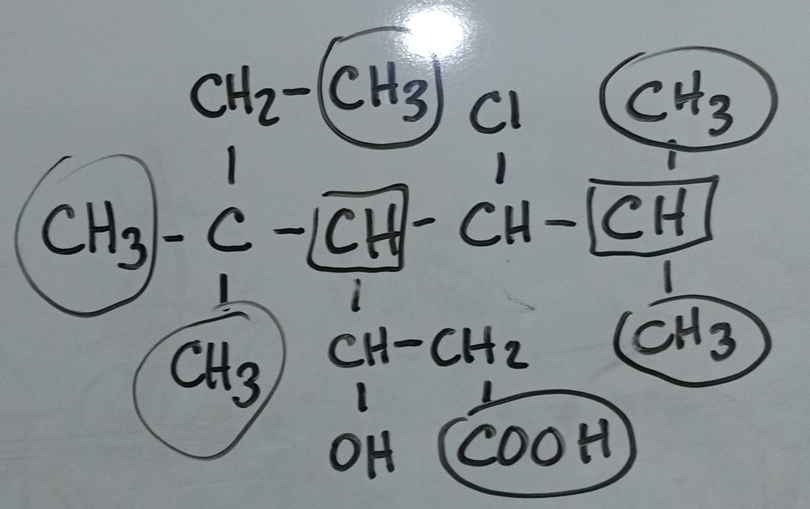 CH2-CH3 Cl CH3
CH3-C-CH-CH-CH
CH3 CH-CH2 CH3
OH COOH